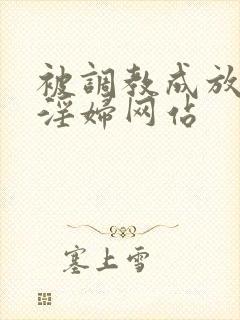 被調教成放
淫婦网佔
塞上雪